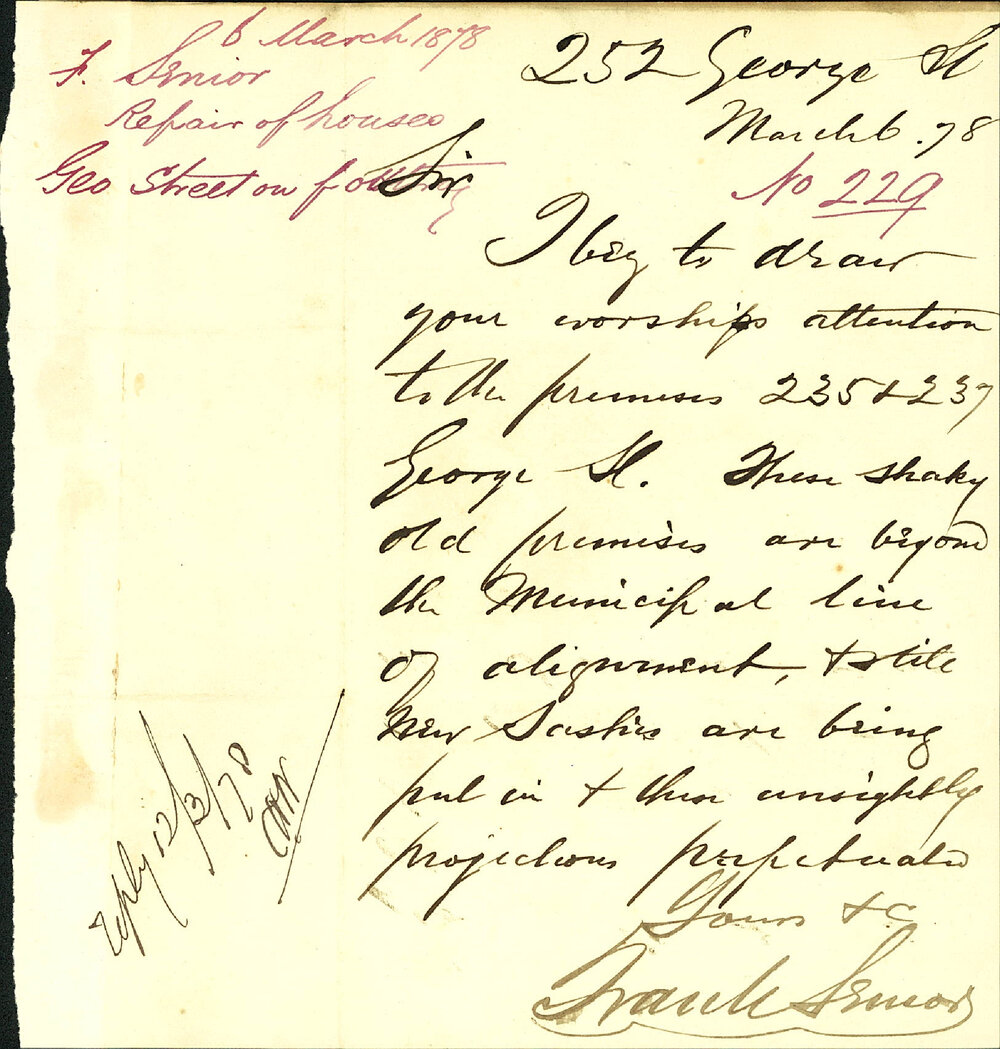 6 March 1878
F. Senior
Repair of houses
Geo Street on footway
252 George St
March 6. 78
No 229
Sir
I beg to draw
your worships attention
to the premises 235 & 237
George St. These shaky
old premises are beyond
the Municipal line
of alignment, & still
New Sashes are being
put in & these unsightly
projections perpetuated
Yours &c
Frank Senior
reply 12/3/78